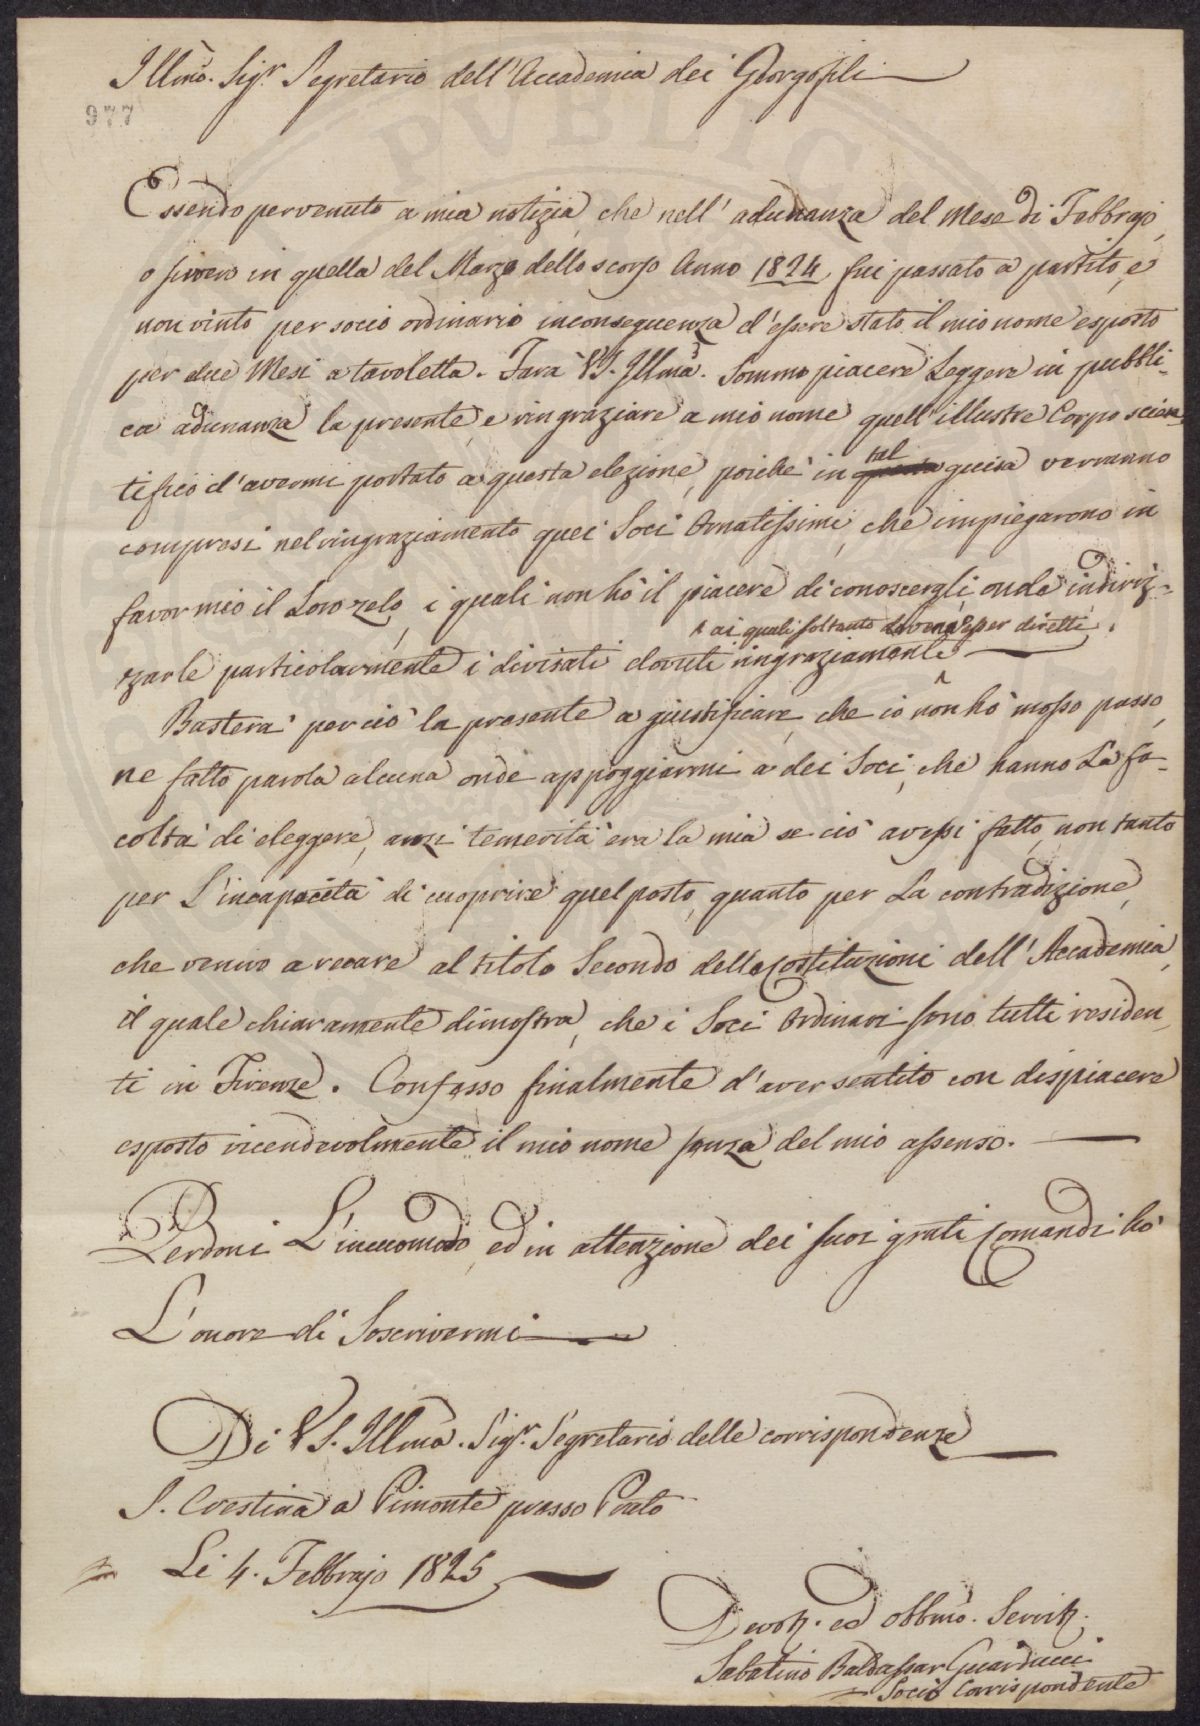 Illmo. Sigr. Segretario dell'Accademia dei Georgofili
977
Essendo pervenuto a mia notizia, che nell'adunanza del Mese di Febbrajo,
o sivero in quella del Marzo dello scorso Anno 1824, fui passato a partito, e
non vinto per socio ordinario inconseguenza d'essere stato il mio nome esposto
per due Mesi a tavoletta. Farà VS. Illma. Sommo piacere Leggere in pubbli-
ca adunanza la presente, e ringraziare a mio nome quell'illustre Corpo scien-
tifico d'avermi portato a questa elezione, poichè in tal guisa verranno
compresi nel ringraziamento quei Soci Ornatissimi, che impiegarono in
favor mio il Loro zelo, i quali non hò il piacere di conoscergli onde indiriz-
ai quali soltanto dovean esser diretti.
zarle particolarmente i divisati dovuti ringraziamenti
Basterà perciò la presente a giustificare, che io non hò mosso passo,
ne fatto parola alcuna onde appoggiarmi a dei Soci, che hanno La fa-
coltà di eleggere, anzi temerità era la mia se ciò avessi fatto, non tanto
per L'incapacità di cuoprire quel posto, quanto per La contradizione,
che venivo a recare al titolo Secondo delle Costituzioni dell'Accademia,
il quale chiaramente dimostra, che i Soci Ordinari sono tutti residen-
ti in Firenze. Confesso finalmente d'aver sentito con dispiacere
esposto vicendevolmente il mio nome senza del mio assenso.
Perdoni L'incuomodo, ed in attenzione dei suoi grati Comandi hò
L'onore di Soscrivermi
Di VS. Illma. Sigr. Segretario delle corrispondenze
S. Crestina a Pimonte presso Prato
Li 4. Febbrajo 1825
Devoti. ed Obbmo. Servit.
Sabatino Baldassar Guarducci
Socio Corrispondente
PVBLIC